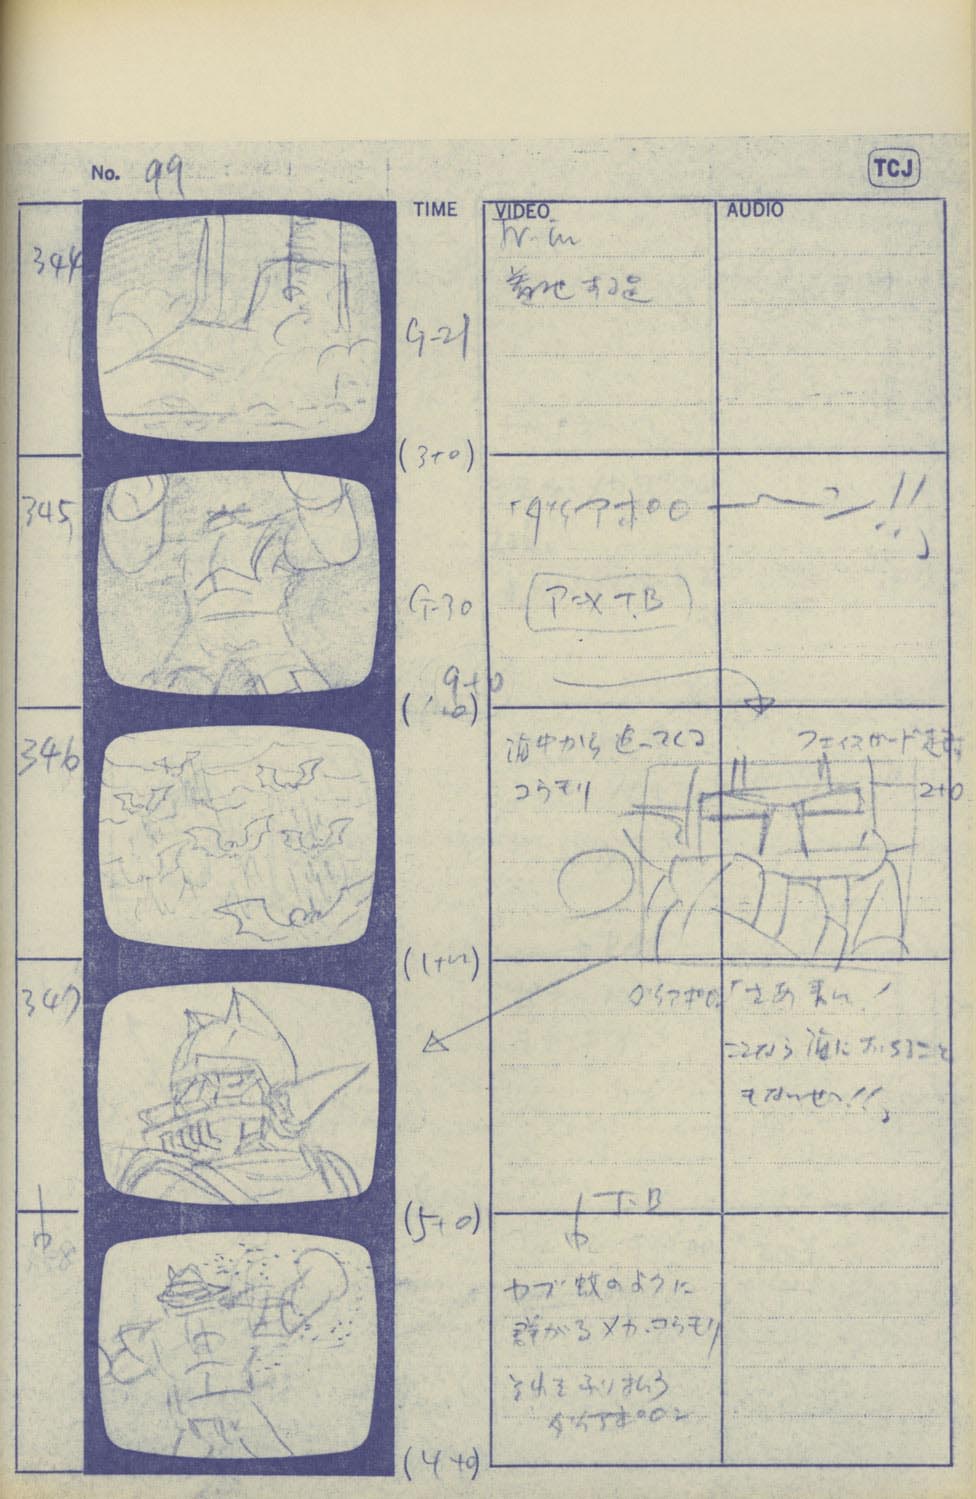 No. 99
TCJ
TIME
VIDEO
AUDIO
344
W-in
着地する足
G-21
(3+0)
345
「ダイアポロンーーン!!」
G-30
アニメ T.B
9+0
346
海中から迫ってくる
コウモリ
フェイスガード
2+0
347
ダイアポロン「さあ来い!
ここなら海におちること
もないぜ!!」
(5+0)
T.B
ヤブ蚊のように
群がるメカ、コウモリ
それをふりはらう
ダイアポロン
(4+0)